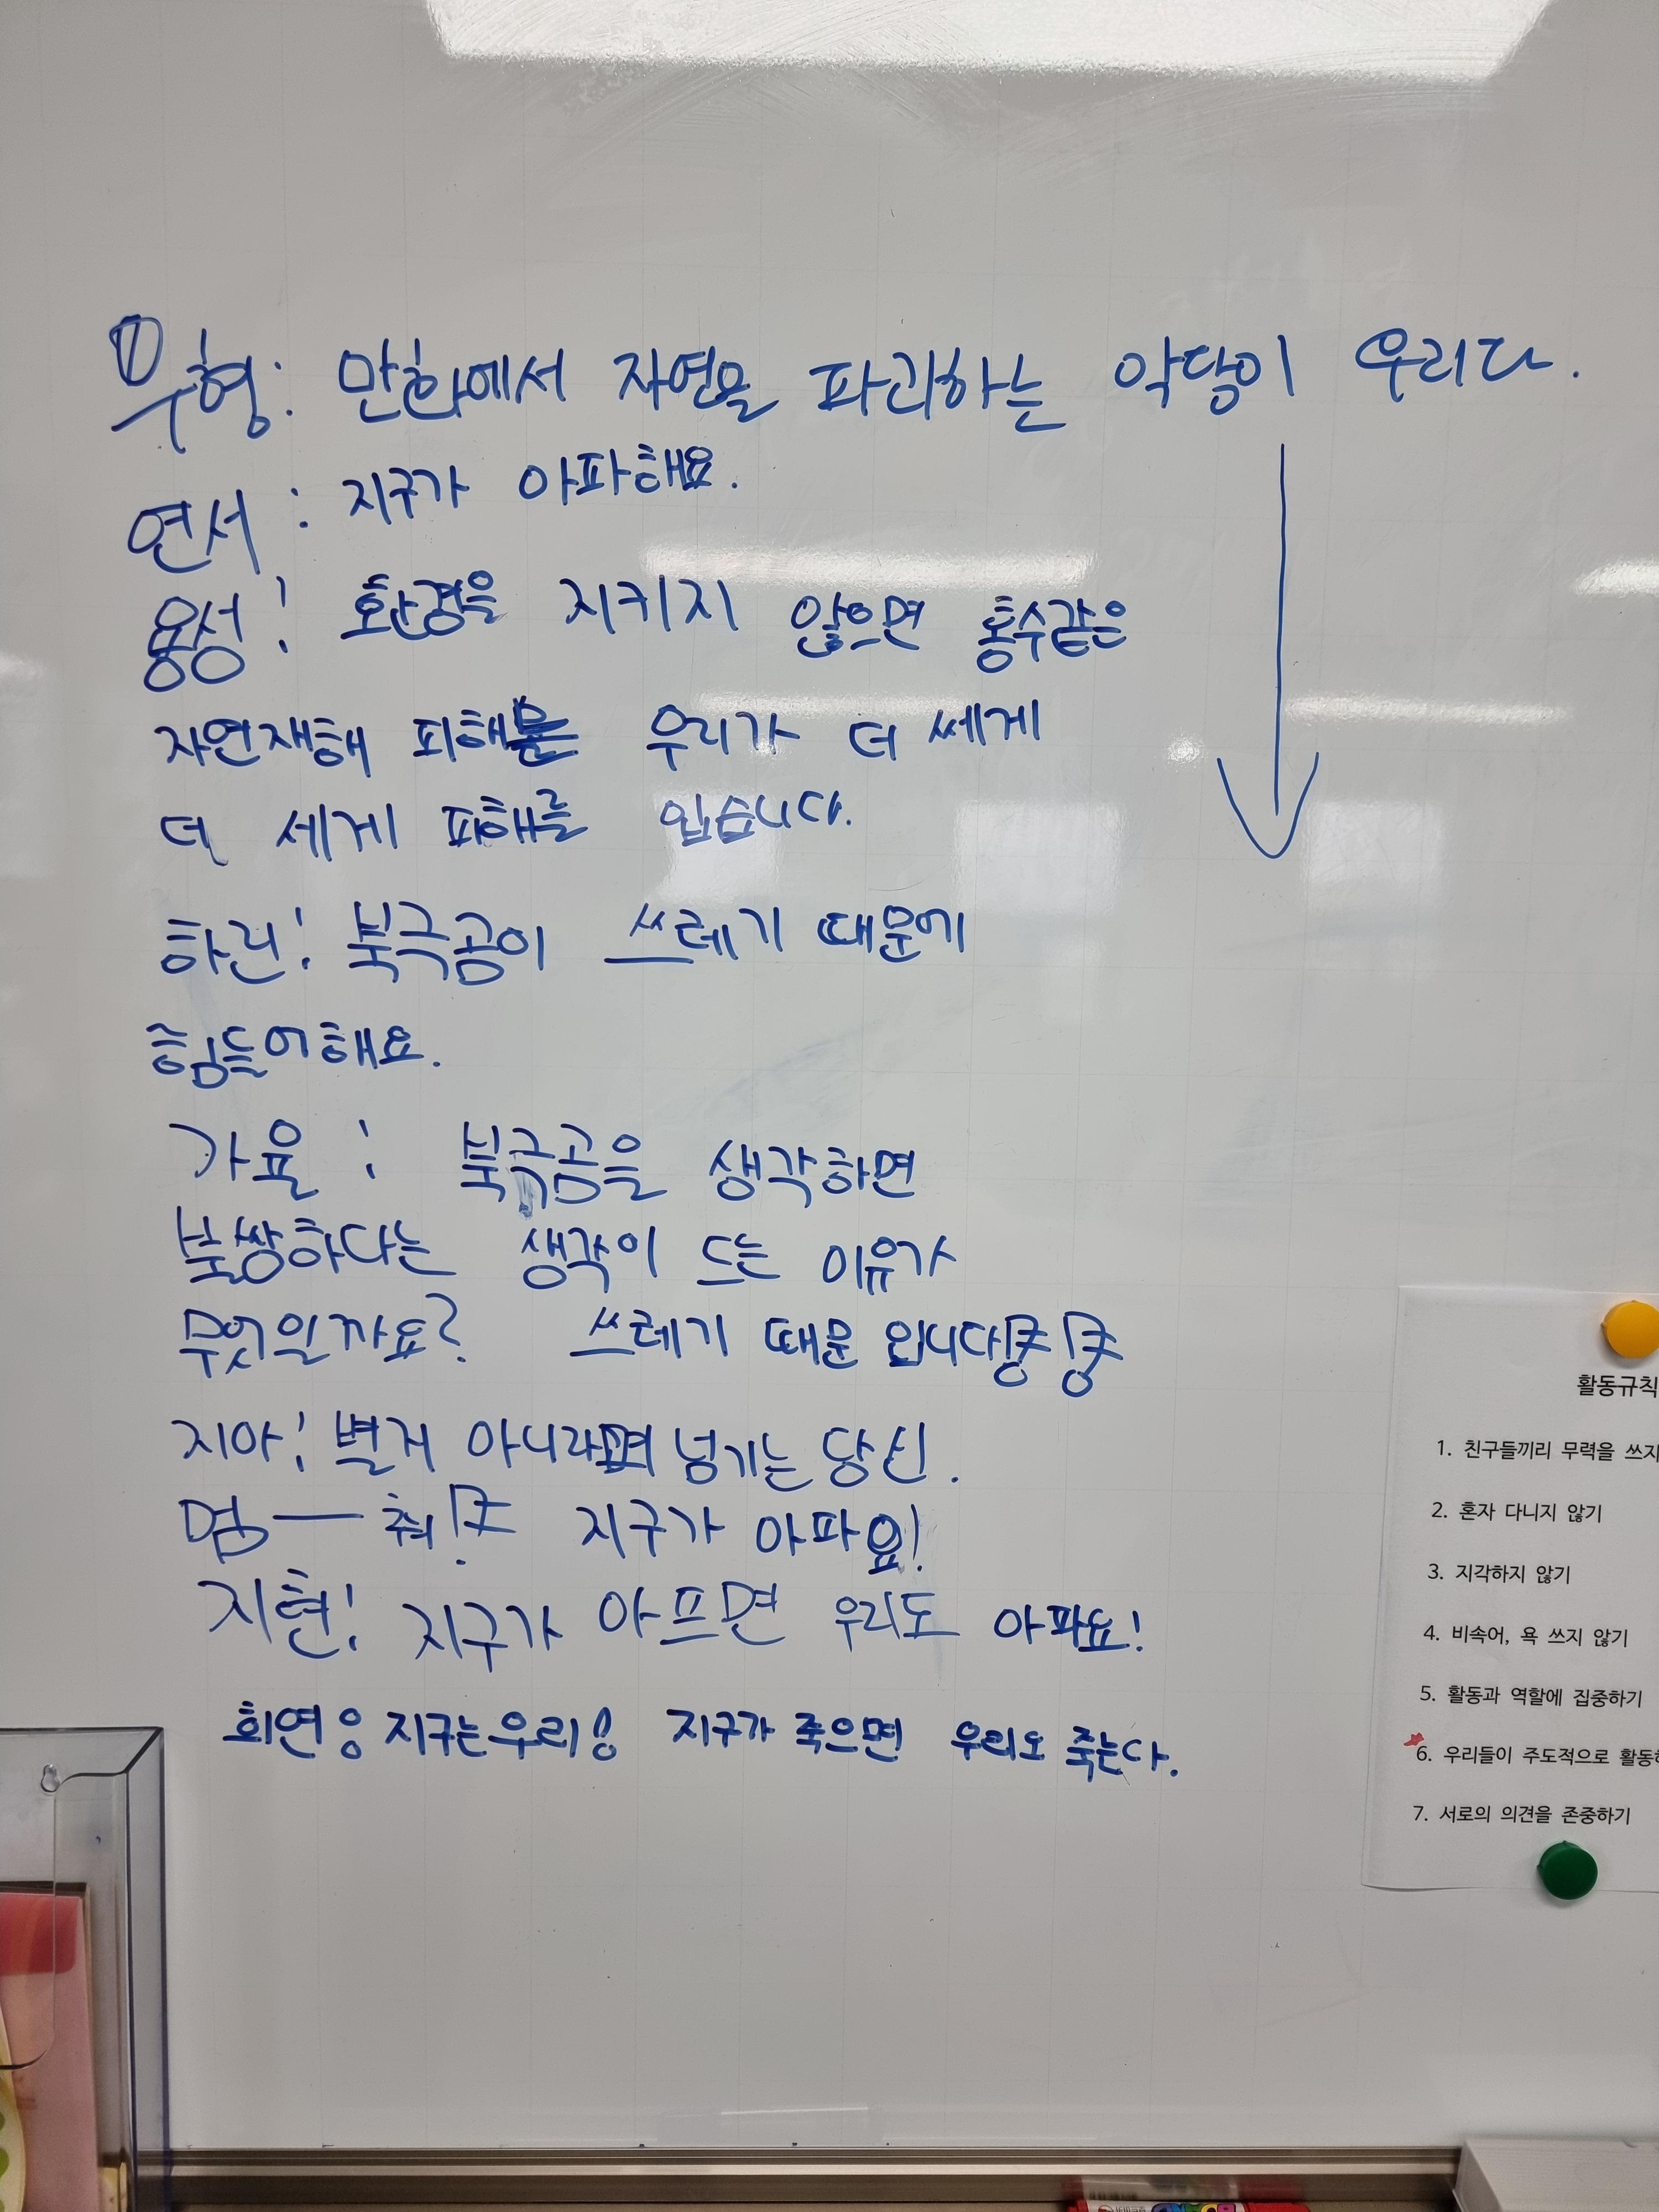 ①
우형: 만화에서 자연을 파괴하는 악당이 우리다.
연서: 지구가 아파해요.
용성: 환경을 지키지 않으면 홍수같은
자연재해 피해를 우리가 더 쎄게
더 세게 피해를 입습니다.
하린: 북극곰이 쓰레기 때문에
힘들어해요.
가율: 북극곰을 생각하면
불쌍하다는 생각이 드는 이유가
무엇일까요? 쓰레기 때문 입니다
지아: 별거 아니라며 넘기는 당신.
멈ㅡ춰! 지구가 아파요!
지현: 지구가 아프면 우리도 아파요!
희연: 지구는우리! 지구가 죽으면 우리도 죽는다.
활동규칙
1. 친구들끼리 무력을 쓰지
2. 혼자 다니지 않기
3. 지각하지 않기
4. 비속어, 욕 쓰지 않기
5. 활동과 역할에 집중하기
6. 우리들이 주도적으로 활동
7. 서로의 의견을 존중하기